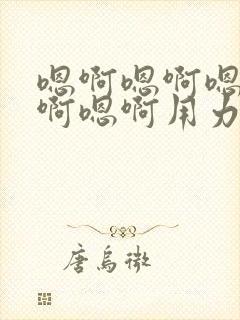 嗯啊嗯啊嗯
啊嗯啊用力
唐鸟微